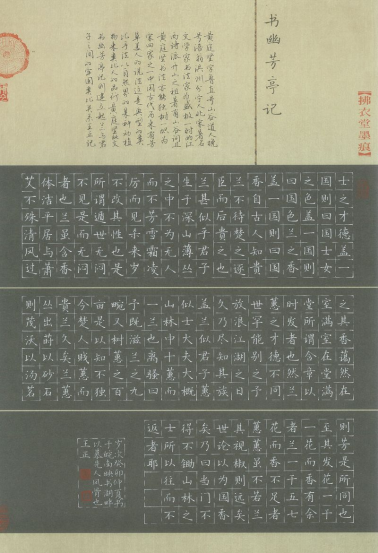 【拂衣堂墨痕】
书幽芳亭记
黄庭坚字鲁直号山谷道人晚
号涪翁洪州分宁人北宋著名
文学家书法家为盛极一时的江
西诗派开山之祖
士之才德盖一
国则曰国士女
之色盖一国则
曰国色兰之香
盖一国则曰国
香自古人知贵
兰不待楚之逐
臣而后贵之也
兰甚似乎君子
生于深山薄丛
之中不为无人
而不芳雪霜凌
厉而见杀来岁
不改其性也是
所谓遁世无闷
不见是而无闷
者也兰虽含香
体洁平居与萧
艾不殊清风过
之其香蔼然在
室满室在堂满
堂所谓含章以
时发者也然兰
蕙之才德不同
世罕能别之予
放浪江湖之日
久乃尽知其族
盖兰似君子蕙
似士大夫大概
山林中十蕙而
一兰也离骚曰
予既滋兰之九
畹又树蕙之百
亩是以知不独
今楚人贱蕙而
贵兰久矣兰蕙
丛出莳以砂石
则茂沃以汤茗
则芳是所同也
至其发花一干
一花而香有余
者兰一干五七
花而香不足者
蕙蕙虽不若兰
其视椒则远矣
世论以为国香
矣乃曰当门不
得不锄山林之
士所以往而不
返者耶